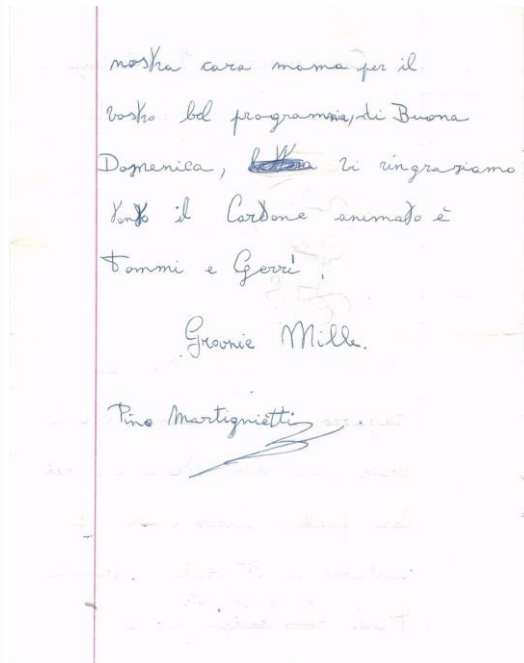 nostra cara mama per il
vostro bel programma, di Buona
Domenica, vi ringraziamo
tanto il Cartone animato è
Tommi e Gerri.
Graonie Mille.
Pino Martignietti